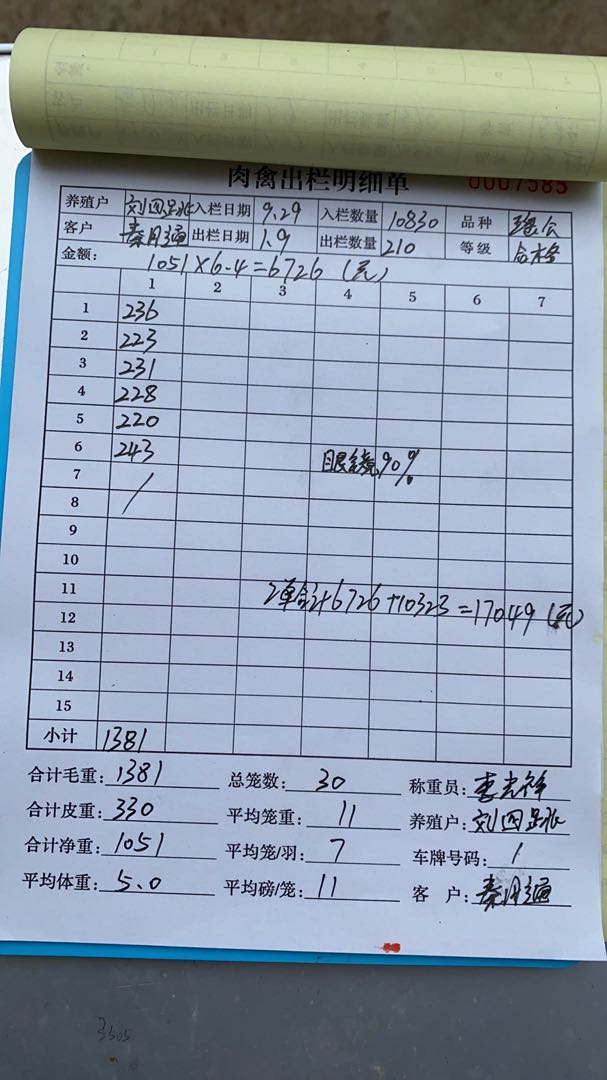 肉禽出栏明细单 0007585
养殖户 刘四 入栏日期 9.29 入栏数量 10830 品种
客户 秦月通 出栏日期 1.9 出栏数量 210 等级 合格
金额: 1051×6.4=6726(元)
1 2 3 4 5 6 7
1 236
2 223
3 231
4 228
5 220
6 243 眼镜90%
7
8
9
10
11 2单合计6726+10323=17049(元)
12
13
14
15
小计 1381
合计毛重: 1381 总笼数: 30 称重员: 李光祥
合计皮重: 330 平均笼重: 11 养殖户: 刘四
合计净重: 1051 平均笼/羽: 7 车牌号码: /
平均体重: 5.0 平均磅/笼: 11 客 户: 秦月通
3505